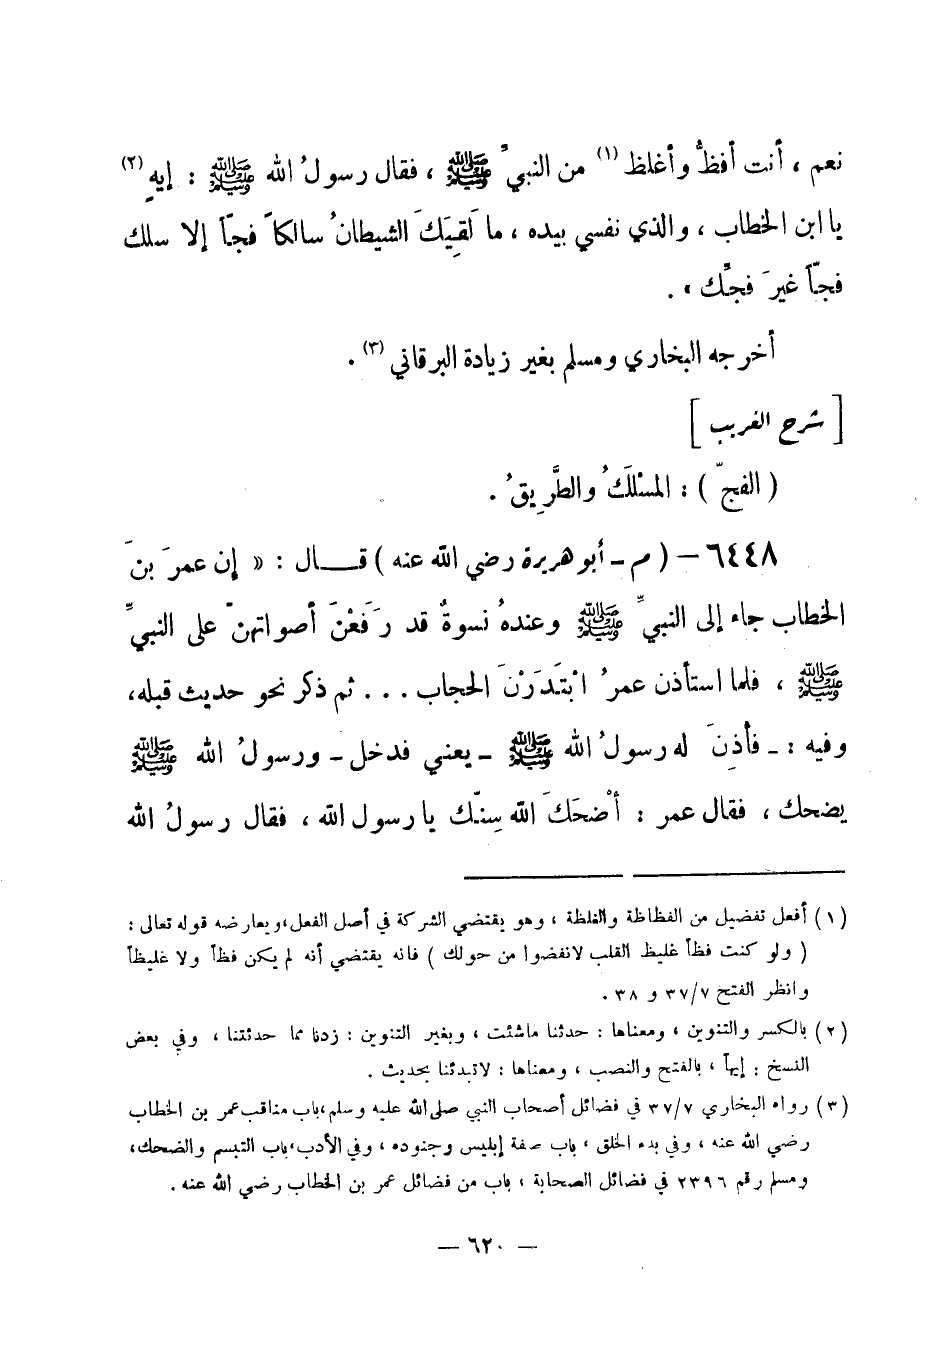 نعم ، أنت أفظُّ وأغلظ (١) من النبيِّ ﷺ ، فقال رسولُ الله ﷺ : إيهٍ (٢)
يا ابن الخطاب ، والذي نفسي بيده ، ما لَقِيَكَ الشيطانُ سالكاً فجّاً إلا سلك
فجّاً غيرَ فجِّك » .
أخرجه البخاري ومسلم بغير زيادة البرقاني (٣) .
[ شرح الغريب ]
( الفجّ ) : المسْلَكُ والطَّرِيقُ .
٦٤٤٨ – ( م - أبو هريرة رضي الله عنه ) قـــال : « إن عمرَ بنَ
الخطاب جاء إلى النبيِّ ﷺ وعندهُ نسوةٌ قد رَفَعْنَ أصواتهنّ على النبيِّ
ﷺ ، فلما استأذن عمرُ ابْتَدَرْنَ الحجاب ... ثم ذكر نحو حديث قبله،
وفيه : - فأذِنَ له رسولُ الله ﷺ - يعني فدخل - ورسولُ الله ﷺ
يضحك ، فقال عمر : أضْحَكَ الله سِنّك يا رسول الله ، فقال رسولُ الله
(١) أفعل تفضيل من الفظاظة والغلظة ، وهو يقتضي الشركة في أصل الفعل،ويعارضه قوله تعالى :
( ولو كنت فظاً غليظ القلب لانفضوا من حولك ) فانه يقتضي أنه لم يكن فظاً ولا غليظاً
وانظر الفتح ٣٧/٧ و ٣٨ .
(٢) بالكسر والتنوين ، ومعناها : حدثنا ماشئت ، وبغير التنوين : زدنا مما حدثتنا ، وفي بعض
النسخ : إيهاً ، بالفتح والنصب ، ومعناها : لاتبدئنا بحديث .
(٣) رواه البخاري ٣٧/٧ في فضائل أصحاب النبي صلى الله عليه وسلم،باب مناقب عمر بن الخطاب
رضي الله عنه ، وفي بدء الخلق ، باب صفة إبليس وجنوده ، وفي الأدب،باب التبسم والضحك،
ومسلم رقم ٢٣٩٦ في فضائل الصحابة ، باب من فضائل عمر بن الخطاب رضي الله عنه .
— ٦٢٠ —